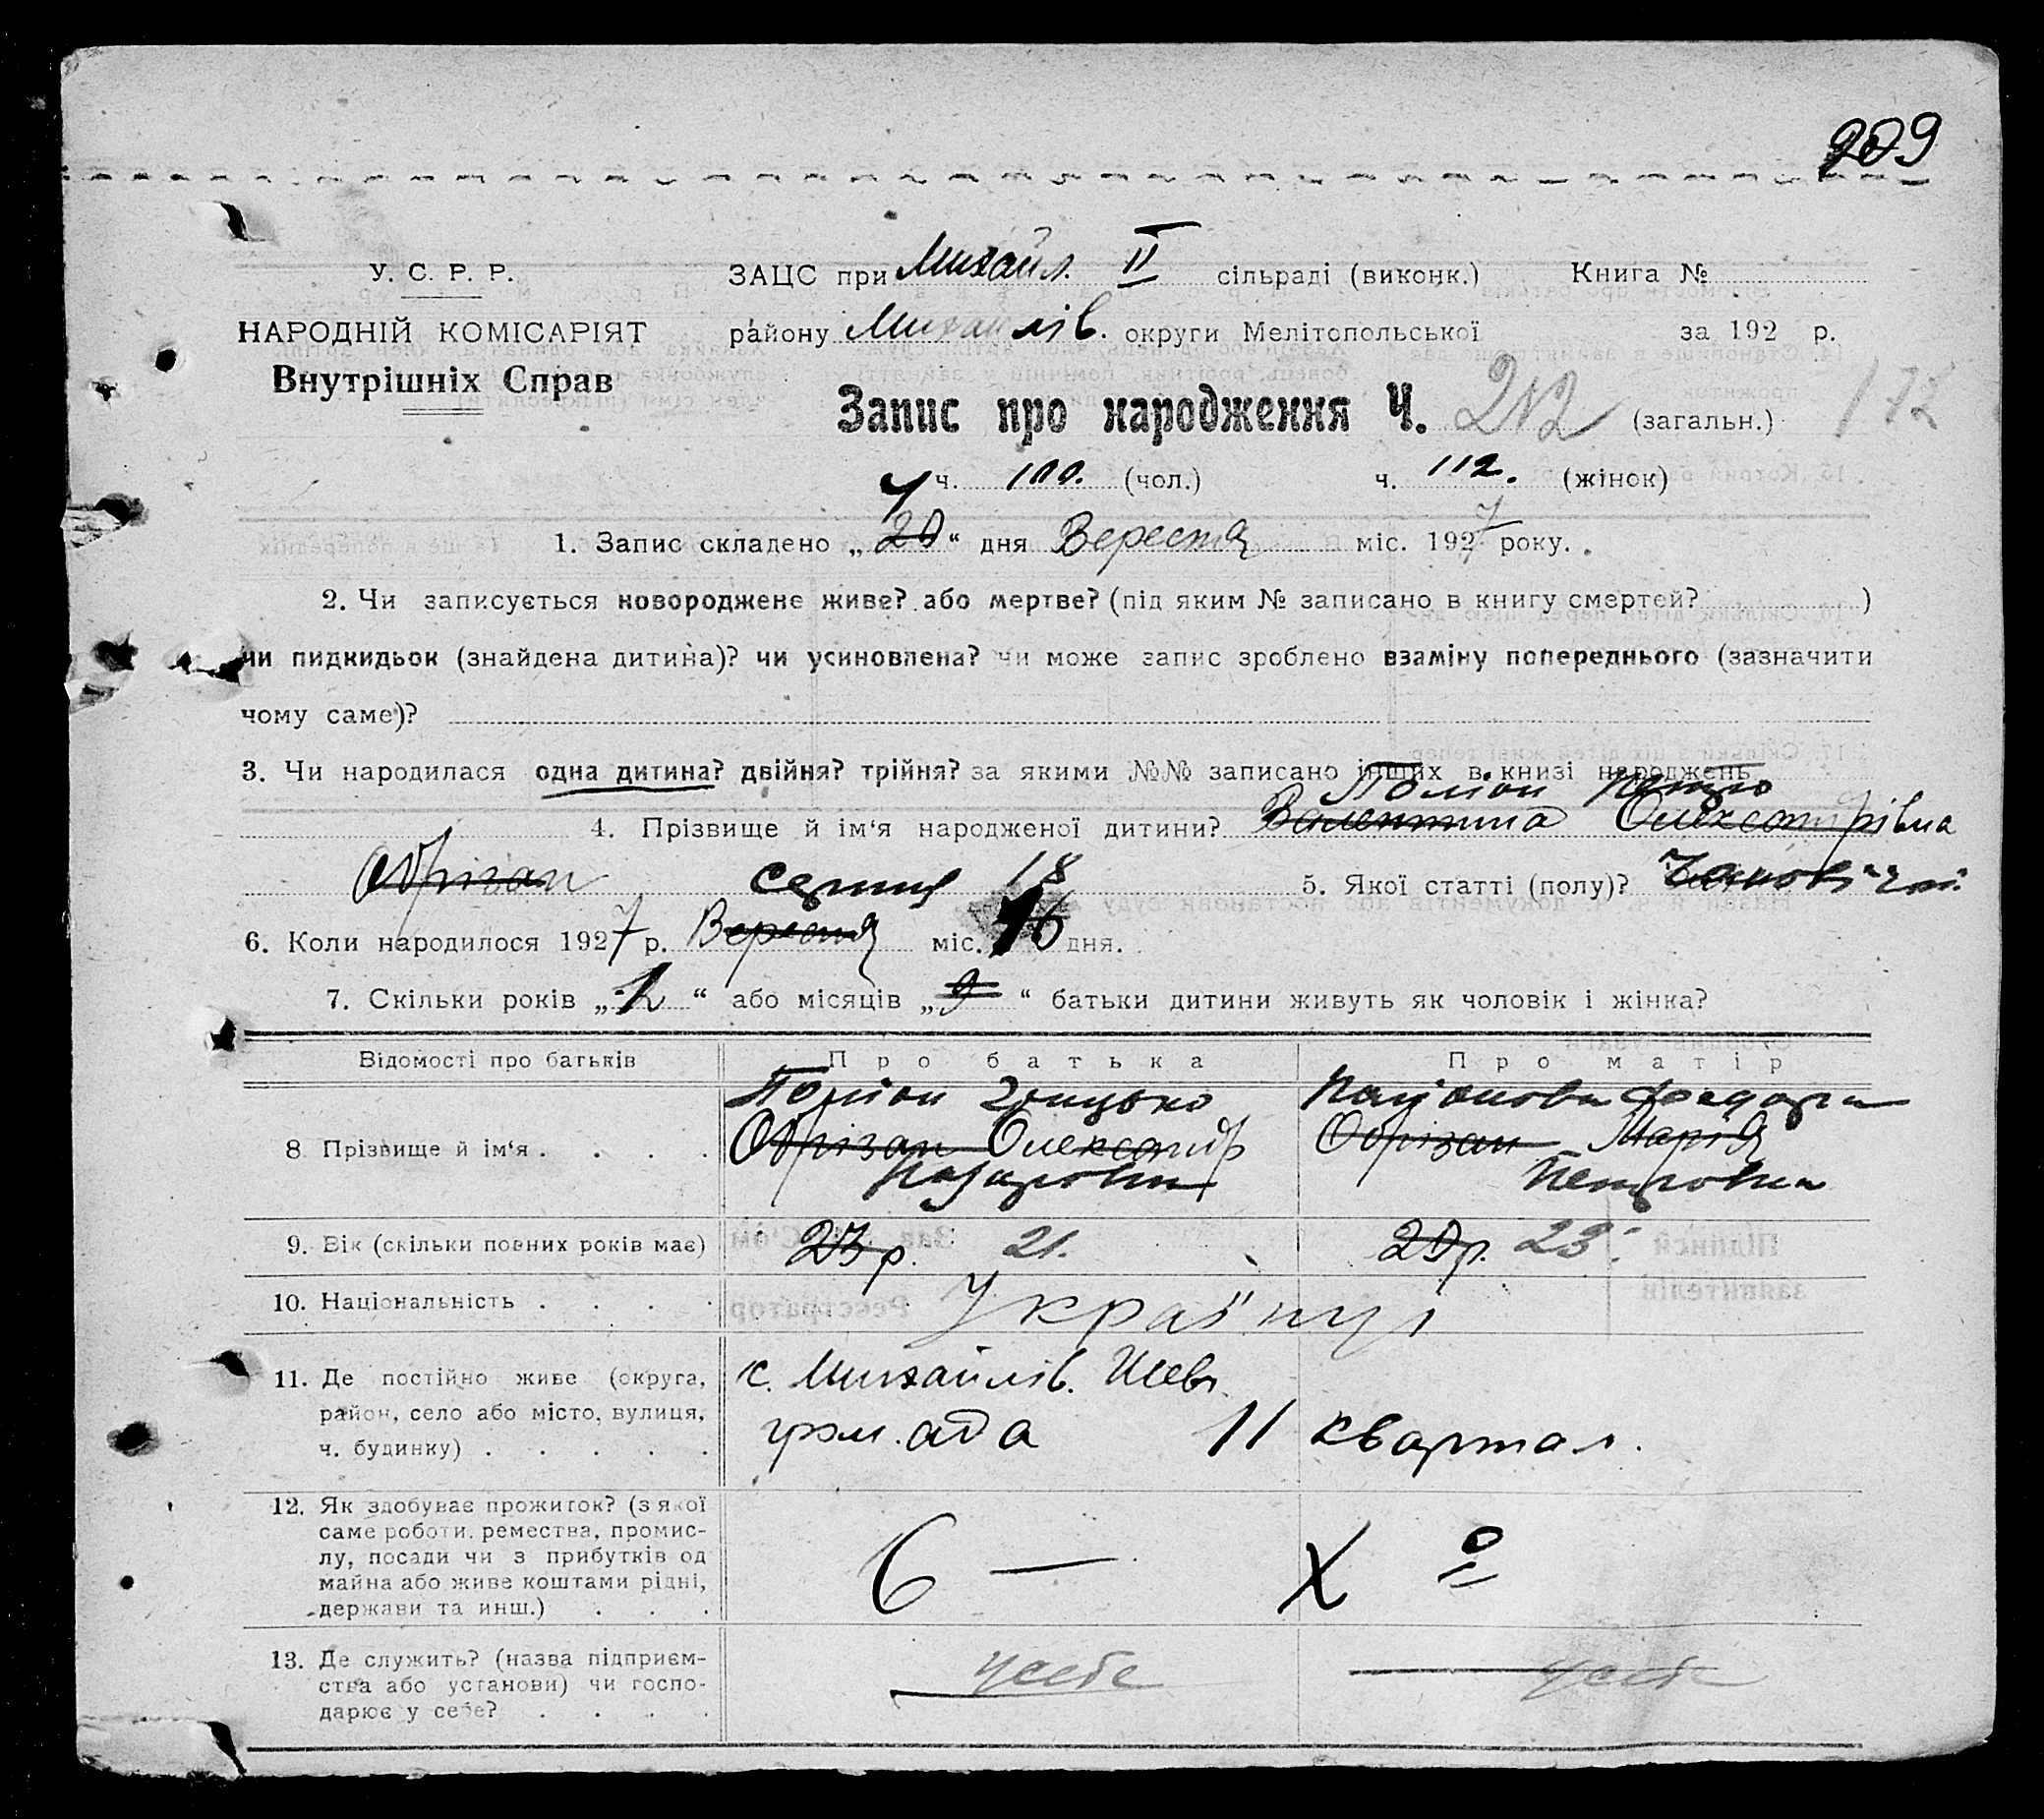 209
У. С. Р. Р.
НАРОДНІЙ КОМІСАРІЯТ
Внутрішніх Справ
ЗАЦС при Михайл. II сільраді (виконк.) Книга №
району Михайлів. округи Мелітопольської за 192 р.
Запис про народження Ч. 212 (загальн.) 172
ч. 100. (чол.) ч. 112. (жінок)
1. Запис складено „ 20 “ дня Вересня міс. 1927 року.
2. Чи записується новороджене живе? або мертве? (під яким № записано в книгу смертей? )
чи пидкидьок (знайдена дитина)? чи усиновлена? чи може запис зроблено взаміну попереднього (зазначити
чому саме)?
3. Чи народилася одна дитина? двійня? трійня? за якими №№ записано інших в книзі народжень
Петро
4. Прізвище й ім‘я народженої дитини? Валентина Олександрівна
Обрізан 5. Якої статті (полу)?
серпня 18
6. Коли народилося 1927 р. Вересня міс. 16 дня.
7. Скільки років „ “ або місяців „ 9 “ батьки дитини живуть як чоловік і жінка?
Відомості про батьків Про батька Про матір
Грицько
8. Прізвище й ім‘я . . . . Обрізан Олександр Обрізан Марія
Назарович Петровна
9. Вік (скільки повних років має) 23 р. 21. 20 р. 23.
10. Національність . . . . Українці
11. Де постійно живе (округа, район, село або місто, вулиця, ч. будинку) . . . . . с. Михайлів. Шевч.
громада 11 квартал.
12. Як здобуває прожиток? (з якої
саме роботи, ремества, промис-
лу, посади чи з прибутків од
майна або живе коштами рідні,
держави та инш.) . . .
Х О
13. Де служить? (назва підприєм-
ства або установи) чи госпо-
дарює у себе? . . . .
у себе у себе